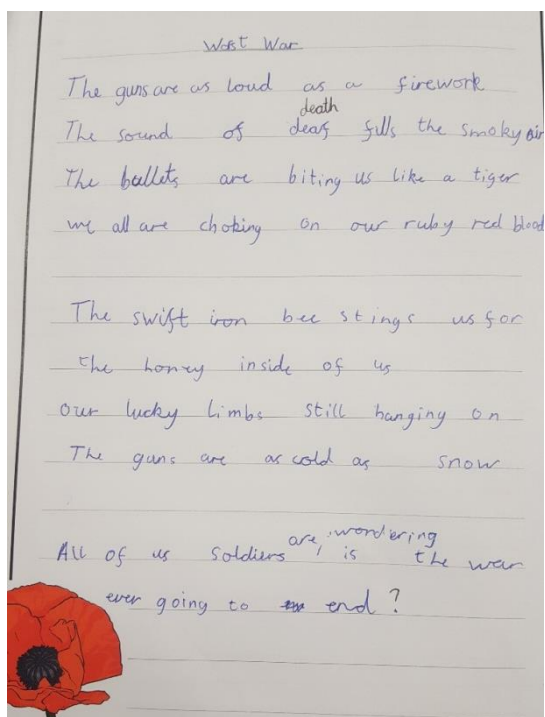 Worst War
The guns are as loud as a firework
death
The sound of deaf fills the smoky air
The bullets are biting us like a tiger
we all are choking on our ruby red blood
The swift iron bee stings us for
the honey inside of us
our lucky limbs still hanging on
The guns are as cold as snow
are, wondering
All of us soldiers is the war
ever going to end?